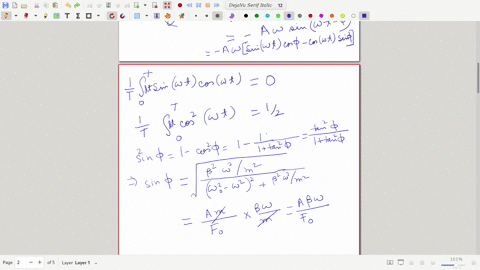 DejaVu Serif Italic 12
= - Aω sin(ωt-φ)
= -Aω[sin(ωt)cosφ-cos(ωt)sinφ]
1/T ∫₀ᵀ dt sin(ωt)cos(ωt) = 0
1/T ∫₀ᵀ dt cos²(ωt) = 1/2
sin²φ = 1-cos²φ = 1 - 1/(1+tan²φ) = tan²φ/(1+tan²φ)
⇒ sinφ = √((β²ω²/m²)/((ω₀²-ω²)² + β²ω²/m²))
= Am/F₀ × βω/m = Aβω/F₀
Page 2 of 5 Layer Layer 1